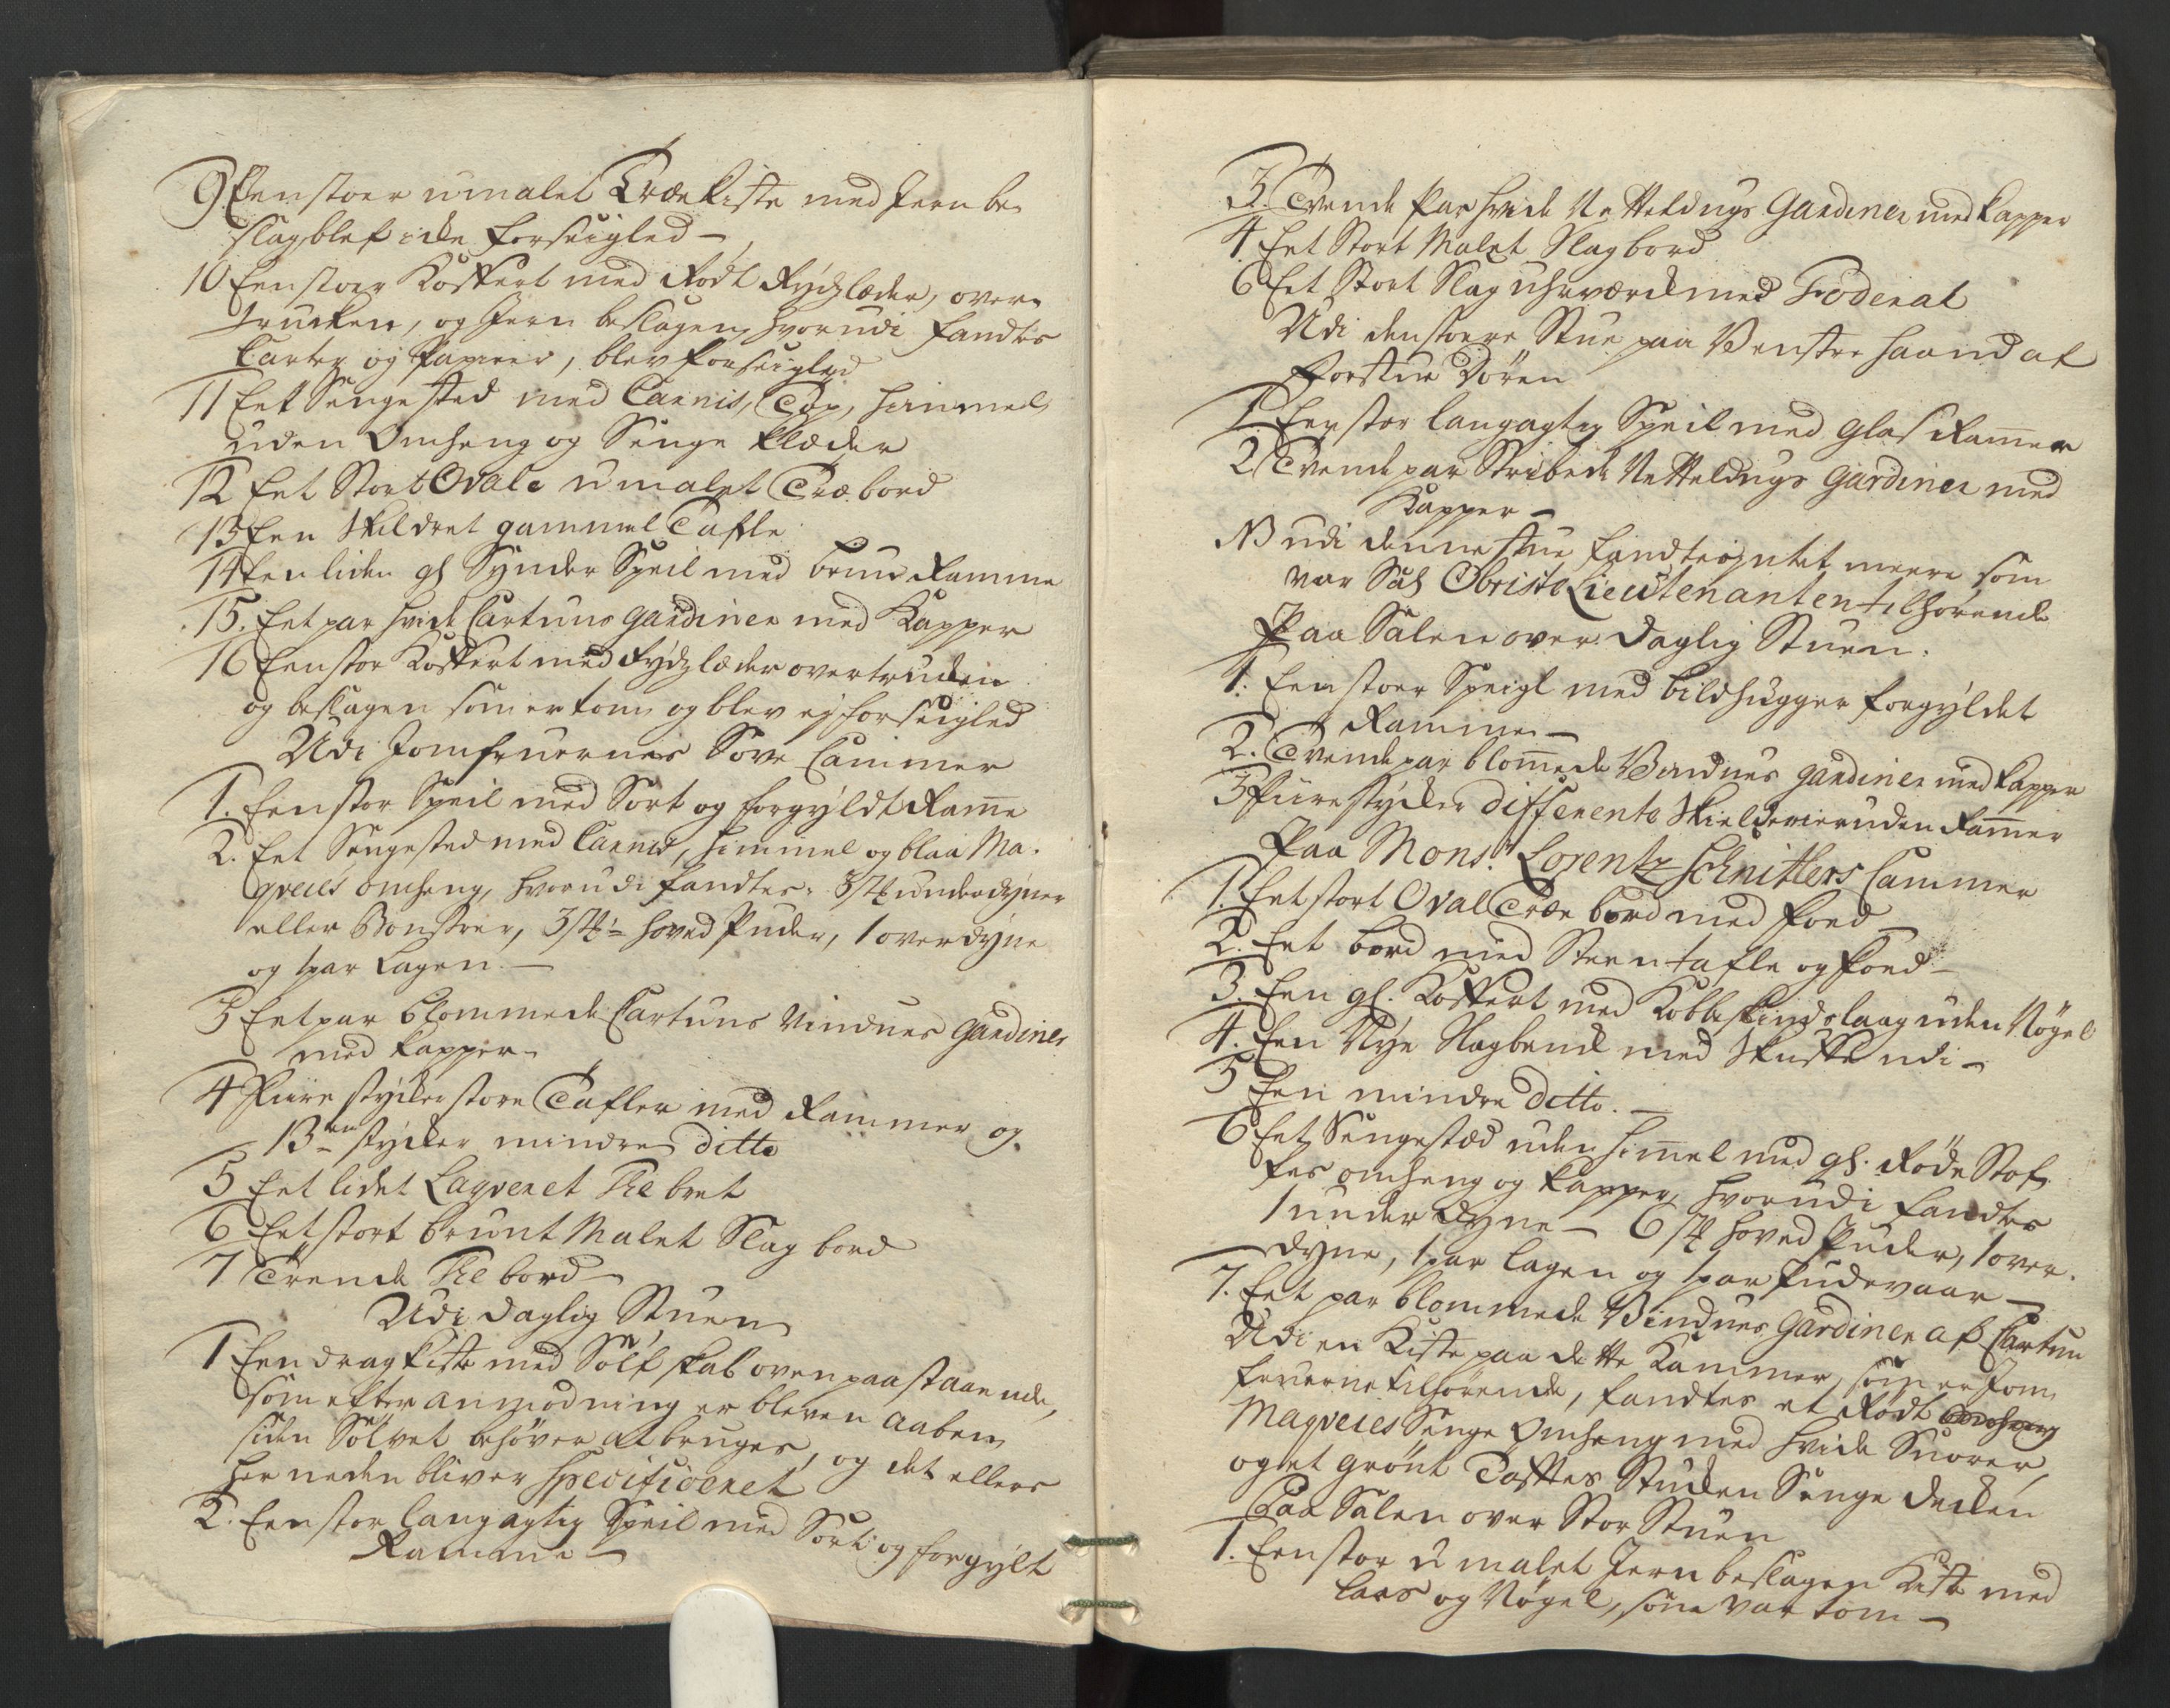 9 Een stoer umalet Træe Kiste med Jern be-
slag blef icke forseigled -
10 Een stoer Koffert med Rødt Rydz læder, over-
trucken, og Jern beslagen, hvorudi fandtes
Carter og Papirer, blev forseigled
11 Eet Sengested med Carnis, Top, Himmel
uden Omheng og Senge klæder
12 Eet Stort Ovale umalet Træ bord
13 Een skildret gammel Tafle
14 Een liden gl Synder Speil med bruun Ramme
15. Eet par hvide Cartuns gardiner med Kapper
16 Een stor Koffert med Rydzlæder overtrucken
og beslagen som er tom og blev ej forseigled
Udi Jomfruernes Sove Cammer
1. Een stor Speil med Sort og forgyldt Ram̅e
2. Eet Sengested med Carnis, Himmel og blaa Ma-
qveies omheng, hvorudi fandtes: 3 st under dyner
eller Bonstver, 3 st hoved Puder, 1 over dyne
og 1 par Lagen -
3 Eet par blommede Cartuns Vindues gardiner
med Kapper -
4 Fiire stycker store Tafler med Rammer og
13 stycker mindre ditto
5 Eet lidet Laqveret The bret
6 Eet stort brunt Malet Slag bord
7 Trende The bord
Udi daglig Stuen
1 Een dragkiste med Sølf skab oven paa staaende,
som efter anmodning er bleven aaben
siden Sølvet behøver at bruges, og det ellers
her neden bliver Specificeret
2. Een stor langagtig Speil med Sort og forgylt
Ramme -
3. Tvende Par hvide Netteldugs Gardiner med Kapper
4 Eet Stort Malet Slagbord
6 Eet Stort Slag uhrværck med Foderal
Udi den stoere Stue paa Venstre Haand af
Forstue Dören
1. Een stor langagtig Speil med glas Ram̅er
2 Tvende par Stribede Netteldugs gardiner med
Kapper -
NB udi denne stue fandtes intet meere som
var Sal Obriste Lieutenanten tilhörende
Paa Salen over Daglig Stuen.
1. Een stoer Speigl med bildhugger forgyldet
Ramme -
2. Tvende par blom̅ede Vindues gardiner med Kapper
3 Fiire stycker differente Skielderier uden Ram̅er
Paa Mons.r Lorentz Schnitlers Cammer
1. Eet stort Oval Træe bord med foed
2. Eet bord med Steen tafle og foed -
3. Een gl. Koffert med Kobbeskinds laag uden Nøgel
4. Een Nye Slagbenk med Skuffe udi -
5 Een mindre ditto. -
6 Eet Sengested uden Him̅el med gl. Røde Stof-
fes omheng og Kapper, hvorudi fandtes
1 under dyne - 6 st hoved Puder, 1 over-
dyne, 1 par lagen og 1 par Pudevaar -
7. Eet par blommede Vindues Gardiner af Cartun
Udi en Kiste paa dette Kammer, som er Jom-
fruerne tilhørende, fandtes et Rødt
Maqveies Senge Omheng med hvide Snorer
og et grönt Tafftes Stucken Senge decken
Paa Salen over Stor Stuen
1. Een stor umalet Jern beslagen Kiste med
Laas og Nøgel, som var tom -